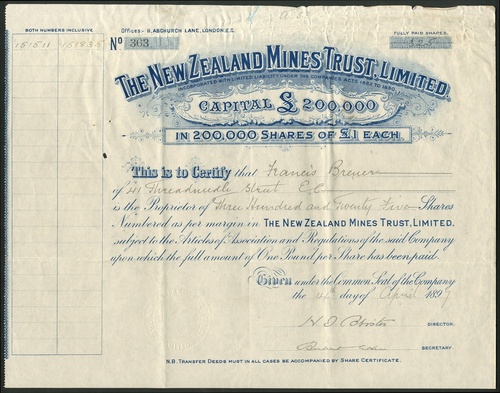 BOTH NUMBERS INCLUSIVE
Offices:- 11, ABCHURCH LANE, LONDON, E.C.
FULLY PAID SHARES.
No 363
325
151511 151835
THE NEW ZEALAND MINES TRUST, LIMITED,
INCORPORATED WITH LIMITED LIABILITY UNDER THE COMPANIES ACTS 1862 TO 1890.
CAPITAL £200,000
IN 200,000 SHARES OF £1 EACH.
This is to Certify that Francis Brewer
of 41 Threadneedle Street E C
is the Proprietor of Three Hundred and Twenty Five Shares
Numbered as per margin in THE NEW ZEALAND MINES TRUST, LIMITED.
subject to the Articles of Association and Regulations of the said Company
upon which the full amount of One Pound per Share has been paid.
Given under the Common Seal of the Company
the day of April 1897
DIRECTOR.
SECRETARY.
N.B. TRANSFER DEEDS MUST IN ALL CASES BE ACCOMPANIED BY SHARE CERTIFICATE.